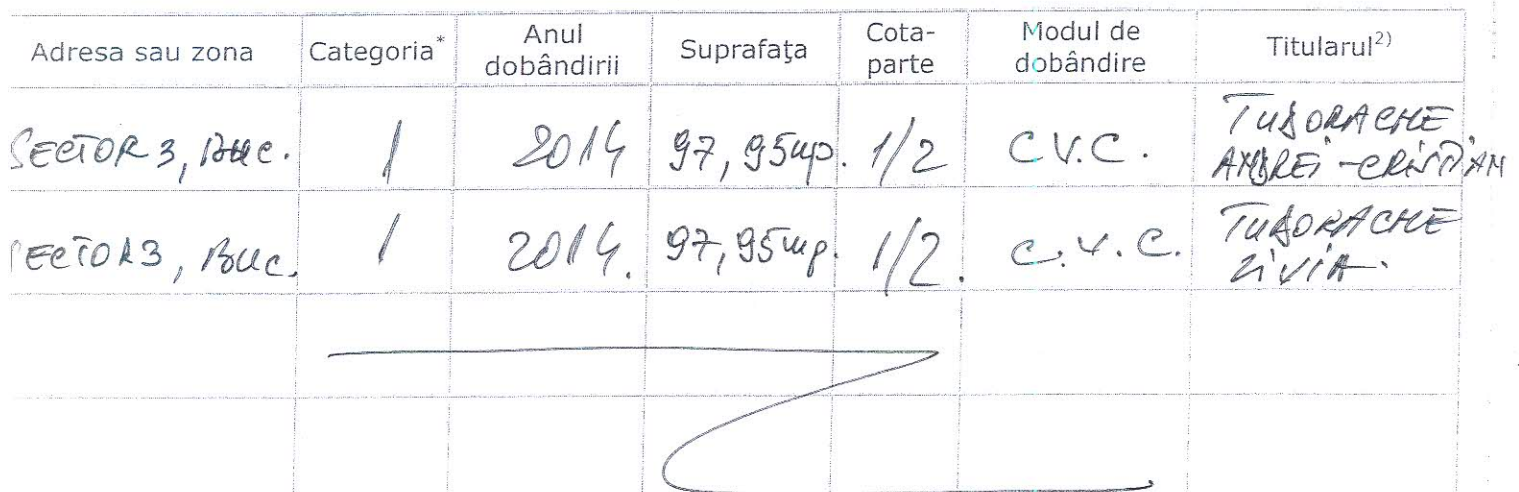 Adresa sau zona Categoria* Anul dobândirii Suprafaţa Cota-parte Modul de dobândire Titularul2)
SECTOR 3, BUC. 1 2014 97,95mp. 1/2 C.V.C. TUDORACHE ANDREI-CRISTIAN
SECTOR 3, BUC. 1 2014. 97,95mp. 1/2. C.V.C. TUDORACHE LIVIA.